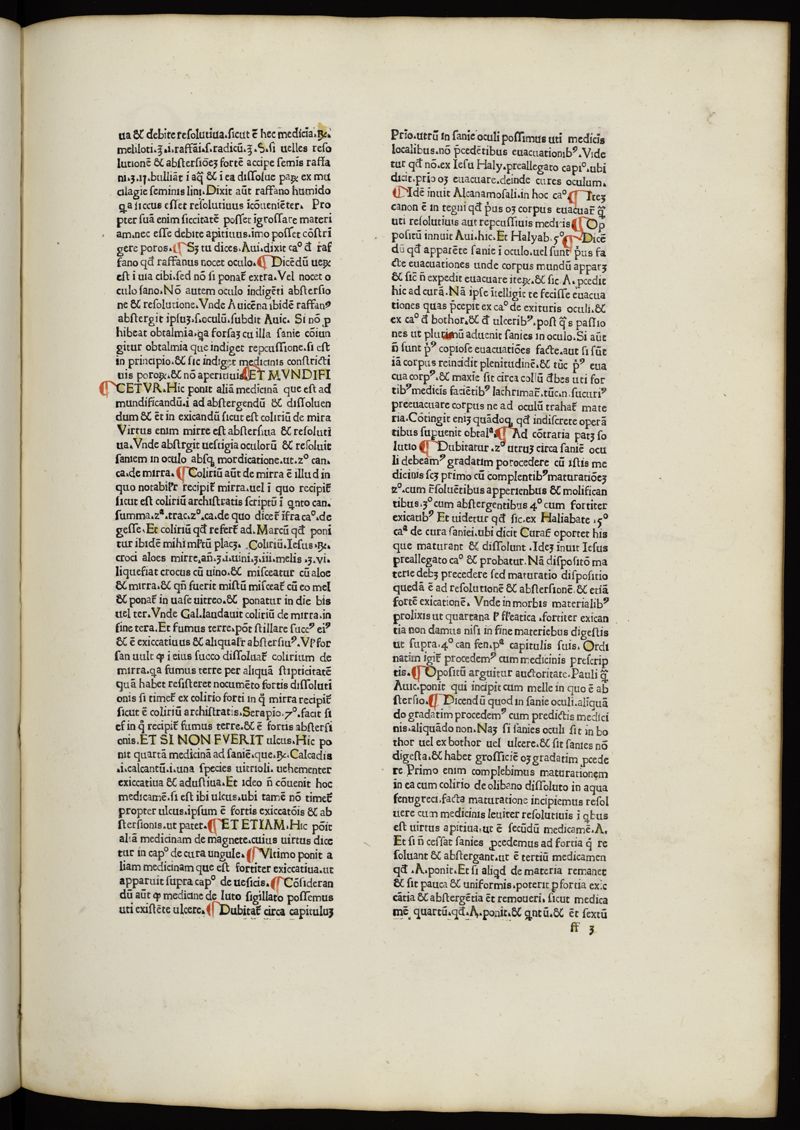 ua & debite resolutiua.sicut ē hec medicīa.℞.
meliloti.ʒ.i.raffāi.s.radicū.ʒ.S.si uelles reso
lutionē & abstersiōeʒ fortē accipe semis raffa
ni.ʒ.ij.bulliāt ī aq̄ & ī ea dissolue paꝝ ex mu
cilagie seminis lini.Dixit aūt raffano humido
q̄a siccus esset resolutiuus īcōueniēter. Pro
pter suā enim siccitatē posset īgrossare materi
am.nec esse debite apitiuus.imo posset cōstri
gere poros.¶Sʒ tu dices.Aui.dixit caº đ raf
fano qđ raffanus nocet oculo.¶Dicēdū ueꝝ
est ī uia cibi.sed nō si ponat̄ extra.Vel nocet o
culo sano.Nō autem oculo indigēti abstersio
ne & resolutione.Vnde Auicēna ibidē raffanꝰ
abstergit ipsuʒ.s.oculū.subdit Auic. Si nō ꝓ
hibeat obtalmia.q̄a forsaʒ cu illa sanie cōiun
gitur obtalmia que indiget repcussione.si est
in principio.& sic indiget medicinis constricti
uis poroꝝ.& nō aperitiuis¶ET MVNDIFI
¶CETVR.Hic ponit aliā medicinā que est ad
mundificandū.i ad abstergendū & dissoluen
dum & ēt in exicandū sicut est coliriū de mira
Virtus enim mirre est abstersiua & resoluti
ua.Vnde abstrgit uestigia oculorū & resoluit
saniem in oculo absqꝫ mordicatione.ut.zº can.
ca.de mirra.¶Coliriū aūt de mirra ē illud in
quo notabilr̄ recipit̄ mirra.uel ī quo recipit̄
sicut est coliriū archistratis scriptū ī qnto can.
summa.zª.trac.zº.ca.de quo dicet̄ īfra caº.de
gesse.Et coliriū qđ refert̄ ad.Marcū qđ poni
tur ibidē mihi ml̄tū placʒ. Coliriū.Iesus.℞.
croci aloes mirre.an̄.ʒ.i.uini.ʒ.iii.melis.ʒ.vi.
liquefiat crocus cū uino.& misceatur cū aloe
& mirra.& qn̄ fuerit mistū misceat̄ cū eo mel
& ponat̄ in uase uitreo.& ponatur in die bis
uel ter.Vnde Gal.laudauit coliriū de mirra.in
fine tera.Et fumus terre.pōt stillare succꝰ eiꝰ
& ē exiccatiuus & aliqualr̄ abstersiuꝰ.Vl̄ for
san uult ꝙ ī eius succo dissoluat̄ colirium de
mirra.q̄a fumus terre per aliquā stipticitatē
quā habet resisteret nocumēto fortis dissoluti
onis si timet̄ ex colirio forti in q̄ mirra recipit̄
sicut ē coliriū archistratis.Serapio.7º.facit si
ef in q̄ recipit̄ fumus terre.& ē fortis abstersi
onis.ET SI NON FVERIT ulcus.Hic po
nit quartā medicinā ad saniē.que.℞.Calcadis
.i.calcantū.i.una species uitrioli. uehementer
exiccatiua & adustiua.Et ideo n̄ cōuenit hoc
medicamē.si est ibi ulcus.ubi tamē nō timet̄
propter ulcus.ipsum ē fortis exiccatōis & ab
stersionis.ut patet.¶ET ETIAM.Hic pōit
aliā medicinam de magnete.cuius uirtus dice
tur in capº de cura ungule.¶Vltimo ponit a
liam medicinam que est fortiter exiccatiua.ut
apparuit supra capº de uesicis.¶Cōsideran
dū aūt ꝙ medicine de luto sigillato possemus
uti existēte ulcere.¶Dubitat̄ circa capituluʒ
Prīo.utrū in sanie oculi possimus uti medicīs
localibus.nō p̄cedētibus euacuationibꝰ.Vide
tur qđ nō.ex Iesu Haly.preallegato capiº.ubi
dicit.prīo oʒ euacuare.deinde cures oculum.
¶Idē inuit Alcanamosali.in hoc caº¶Iteʒ
canon ē in tegni qđ p̄us oʒ corpus euacuar̄ q̄ʒ
uti resolutiuis aut repcussiuis medīis¶Op
positū innuit Aui.hic.Et Halyab.5º¶Dicē
dū qđ apparēte sanie ī oculo.uel sunt p̄us fa
cte euacuationes unde corpus mundū apparʒ
& sic n̄ expedit euacuare iteꝝ.& sic A.p̄cedit
hic ad curā.Nā ipse ītelligit te fecisse euacua
tiones quas p̄cepit ex ca.º de exituris oculi.&
ex caº đ bothor.& đ ulceribꝰ.post q̄s passio
nes ut plurimū aduenit sanies in oculo.Si aūt
n̄ sunt pꝰ copiose euacuatiōes facte.aut si sūt
iā corpus reincidit plenitudinē.& tūc pꝰ eua
cua corpꝰ.& maxie sit circa collū đbes uti for
tibꝰ medicis faciētibꝰ lachrimar̄.tūc.n.sucuriꝰ
preeuacuare corpus ne ad oculū trahat̄ mate
ria.Cōtingit eniʒ quādoqꝫ qđ indiscrete operā
tibus supuenit obtalª.¶Ad cōtraria patʒ so
lutio¶Dubitatur.zº utruʒ circa saniē ocu
li debeamꝰ gradatim porocedere cū istis me
dicinis scʒ primo cū complentibꝰ maturatiōeʒ
zº.cum r̄soluētibus apperienbus & molifican
tibus.3º cum abstergentibus 4º cum fortiter
exicatibꝰ Et uidetur qđ sic.ex Haliabate.5º
caª de cura saniei.ubi dicit Curaf oportet his
que maturant & dissolunt.Ideʒ inuit Iesus
preallegato caº & probatur.Nā dispositō ma
terie debʒ precedere sed maturatio dispositio
quedā ē ad resolutionē & abstersionē.& etiā
fortē exicationē. Vnde in morbis materialibꝰ
prolixis ut quartana ł ff̄eatica.fortiter exican
tia non damus nisi in fine materiebus digestis
ut supra.4º can fen.pª capitulis suis. Ordi
natim igit̄ procedemꝰ cum medicinis prescrip
tis.¶Opositū arguitur auctoritate.Pauli q̄ʒ
Auic.ponit qui incipit cum melle in quo ē ab
stersio.¶Dicendū quod in sanie oculi.aliquā
do gradatim procedemꝰ cum predictis medici
nis.aliquādo non.Naʒ si sanies oculi sit in bo
thor uel ex bothor uel ulcere.& sit sanies nō
digesta.& habet grossiciē oʒ gradatim p̄cede
re Primo enim complebimus maturationem
in ea cum colirio de olibano dissoluto in aqua
fenugreci.facta maturatione incipiemus resol
uere cum medicinis leuiter resolutiuis ī qbus
est uirtus apitiua.ut ē secūdū medicamē.A.
Et si n̄ cessat sanies p̄cedemus ad fortia q̄ re
soluant & abstergant.ut ē tertiū medicamen
qđ.A.ponit.Et si aliqđ de materia remanet
& sit pauca & uniformis.poterit p fortia exic
cātia & abstergētia ēt remoueri. sicut medica
mē quartū.qđ.A.ponit.& qntū.& ēt sextū
ff 3